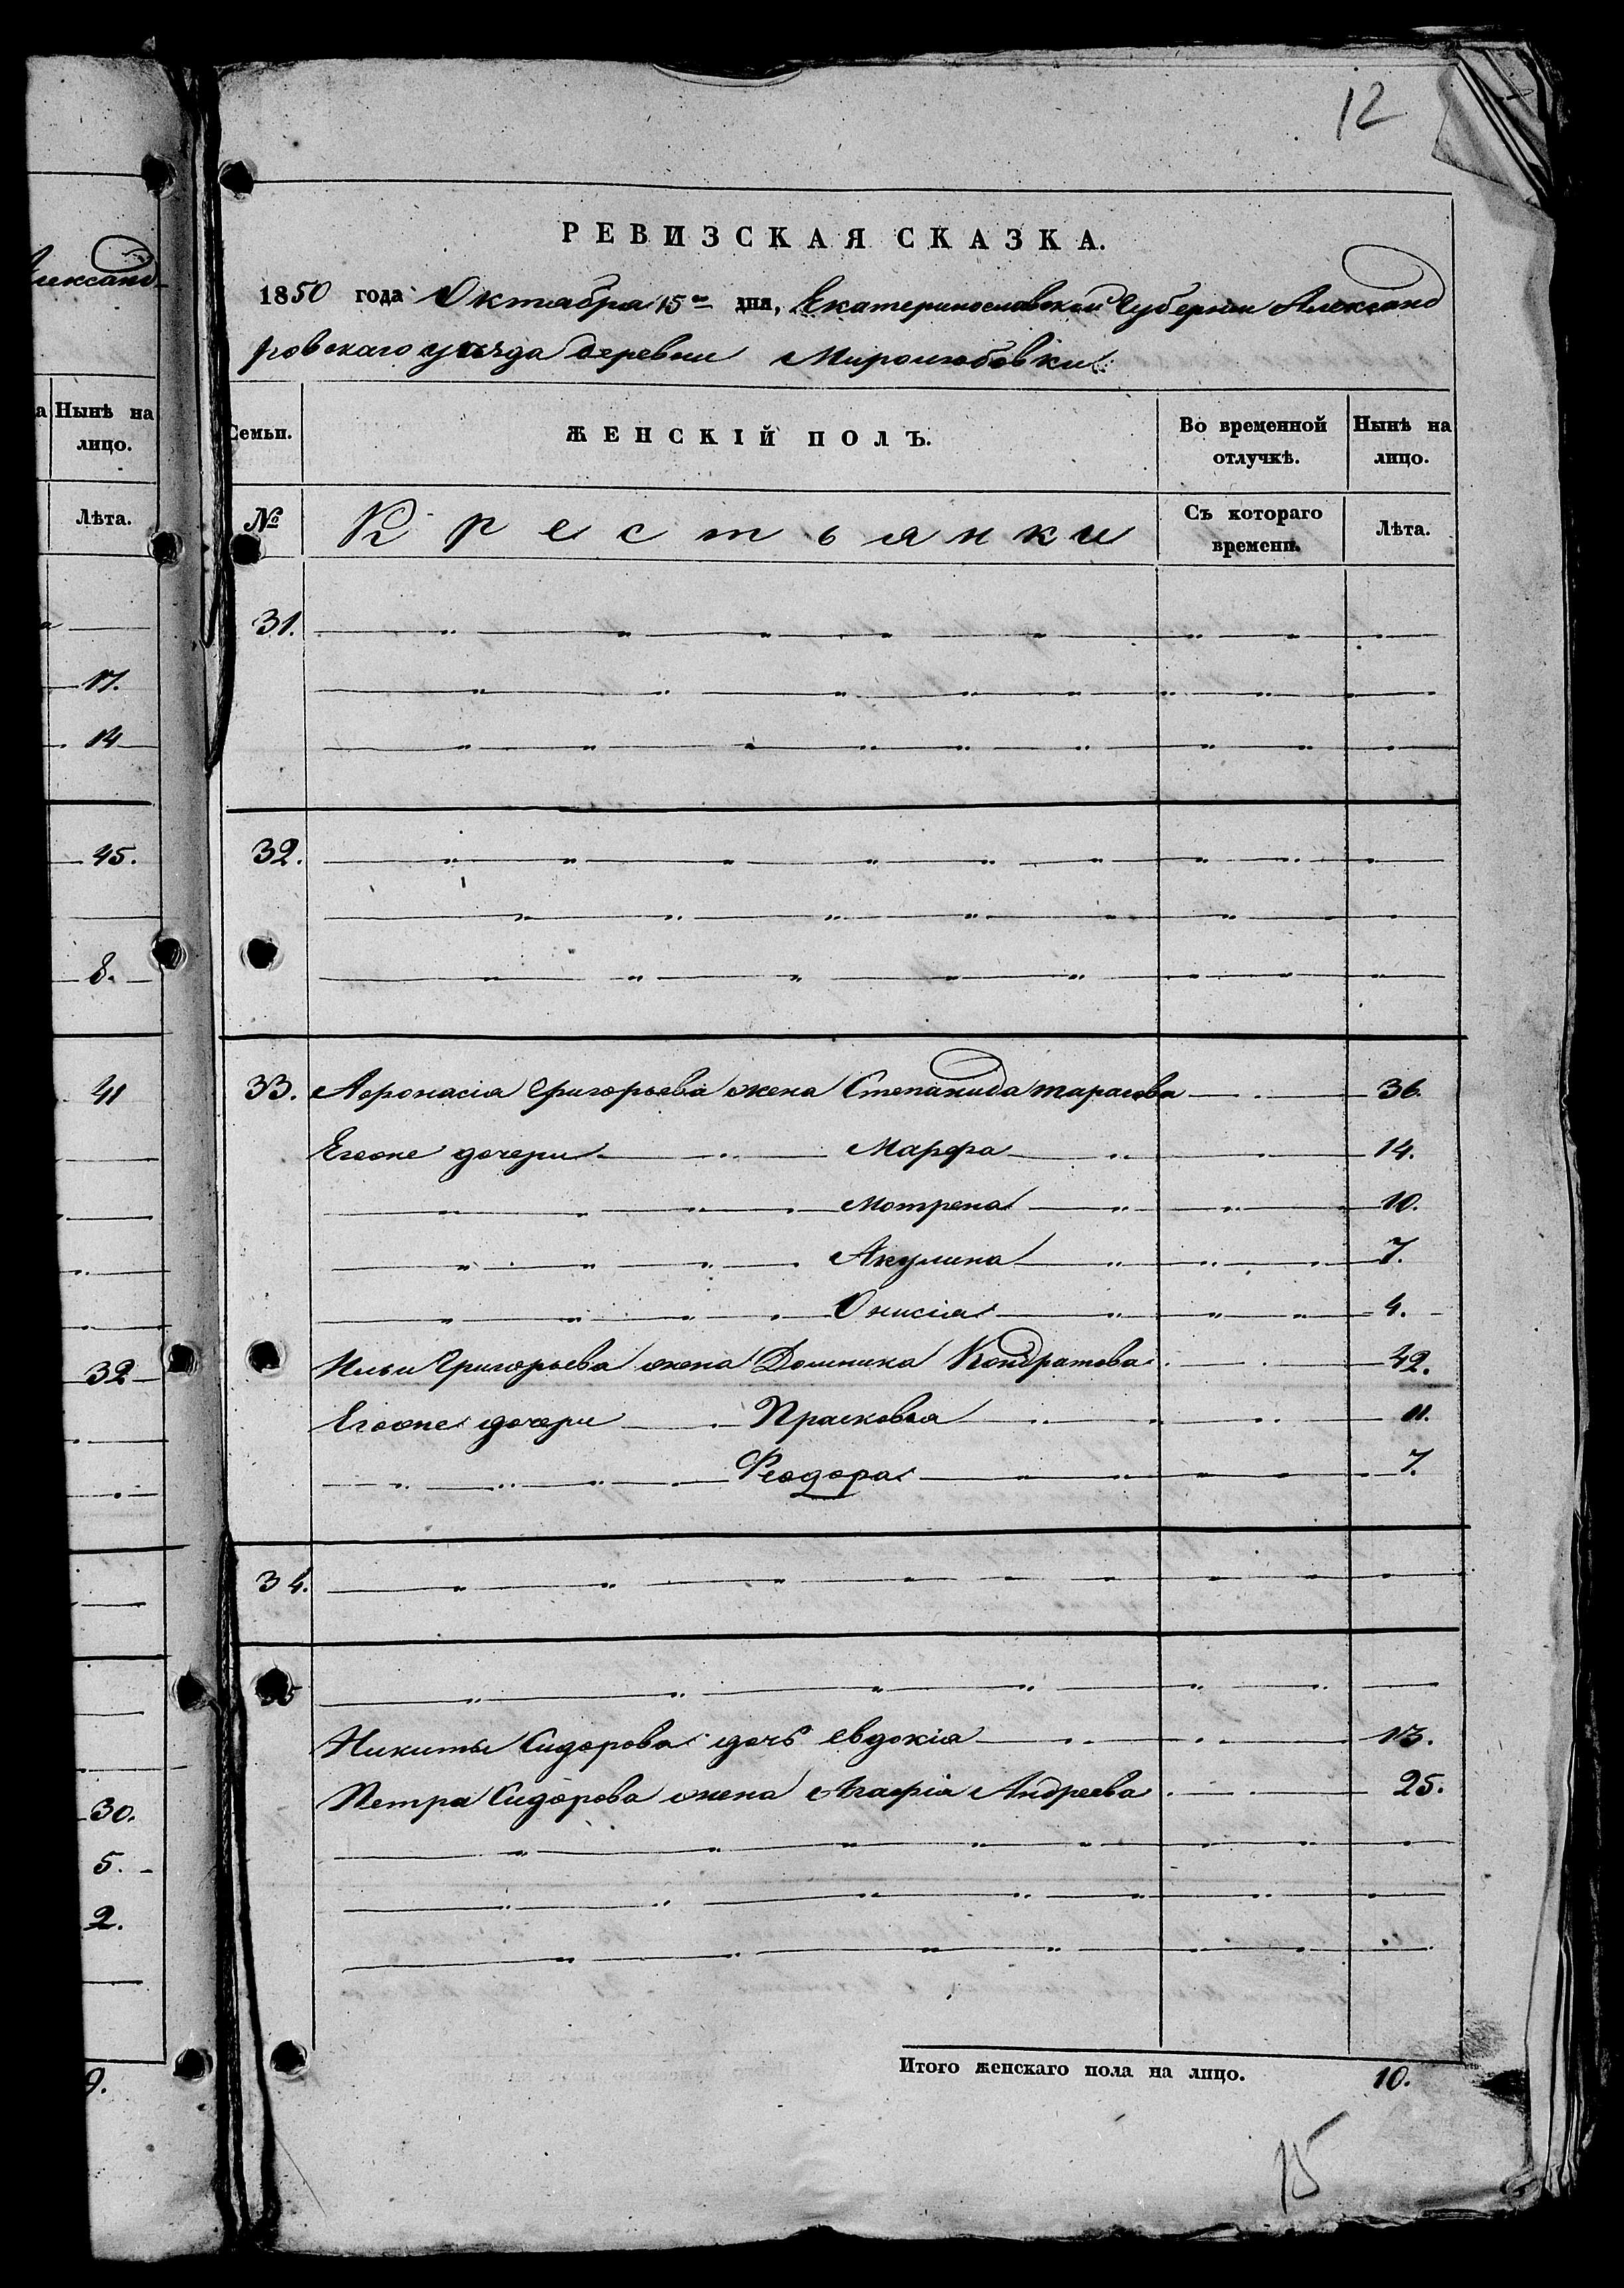 лександ
а Нынѣ на
лицо.
Лѣта.
17.
14
45.
8.
41
32
30.
5.
2.
12
РЕВИЗСКАЯ СКАЗКА.
1850 года Октября 15го дня, Екатеринославской Губернии Александ
ровскаго уѣзда деревни Миролюбовки
Семьи. ЖЕНСКІЙ ПОЛЪ. Во временной отлучкѣ. Нынѣ на лицо.
№ Крестьянки Съ котораго времени. Лѣта.
31.
32.
33. Афонасія Григорьева жена Степанида тарасова 36.
Егоже дочери Марфа 14.
Мотрена 10.
Акулина 7.
Онисія 4.
Ильи Григорьева жена Домника Кондратова 42.
Егоже дочери Прасковья 11.
Феодора 7.
34.
35
Никиты Сидорова дочь евдокія 13.
Петра Сидорова жена Агафія Андреева 25.
Итого женскаго пола на лицо. 10.
15